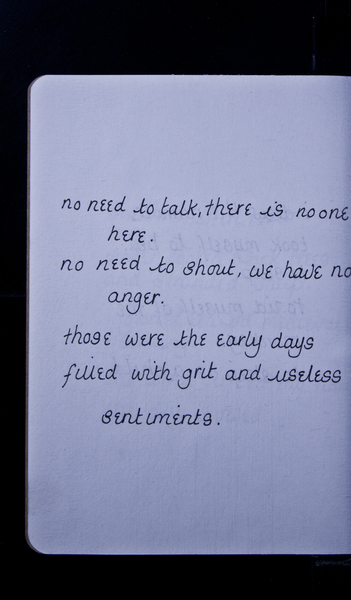 no need to talk, there is no one
here.
no need to shout, we have no
anger.
those were the early days
filled with grit and useless
sentiments.